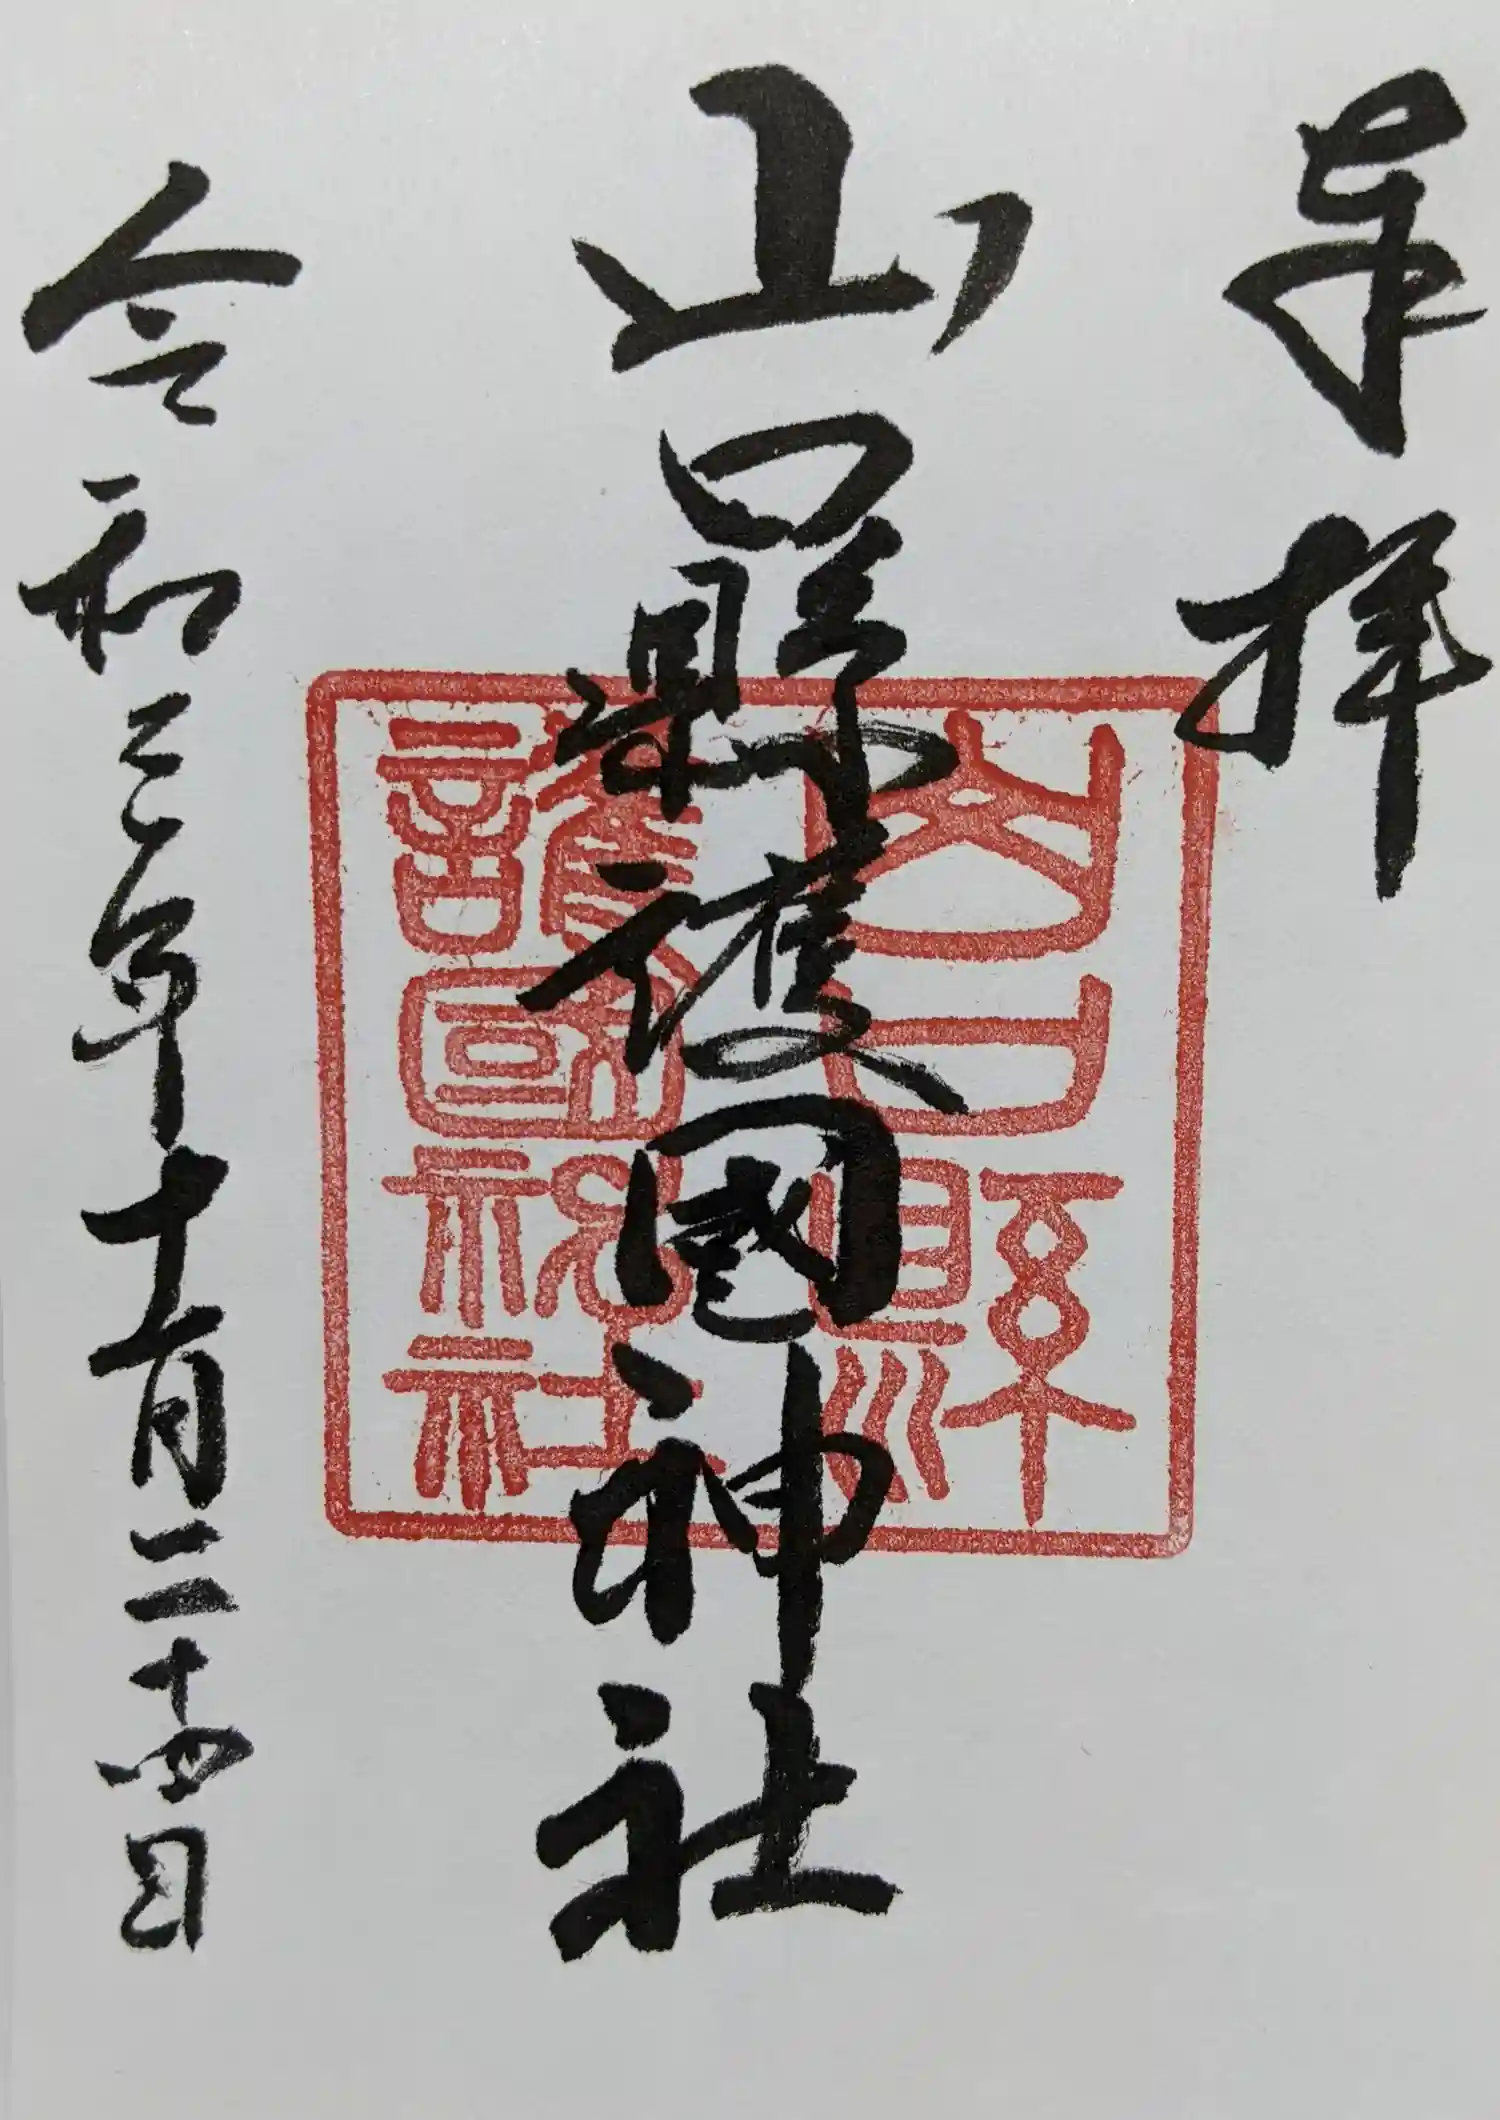 奉拝
山口縣護國神社
令和三年十一月二十四日
山口縣
護國神社